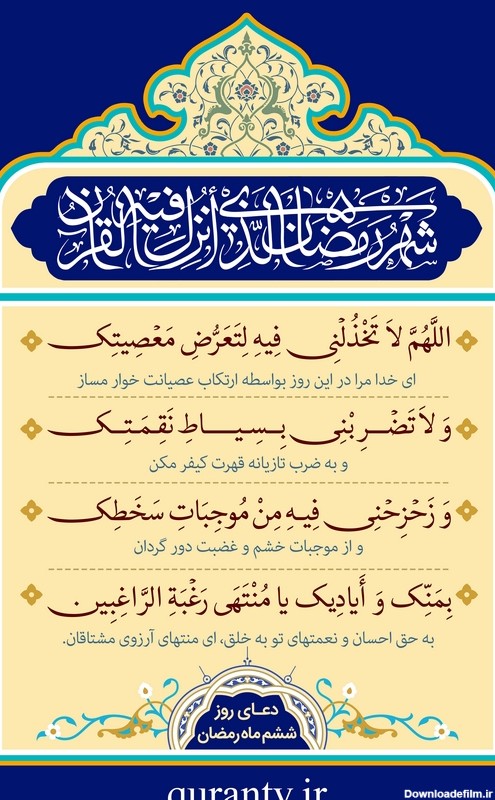 شَهْرُ رَمَضَانَ الَّذِي أُنْزِلَ فِيهِ الْقُرْآنُ
اللَّهُمَّ لاَ تَخْذُلْنِی فِیهِ لِتَعَرُّضِ مَعْصِیتِک
ای خدا مرا در این روز بواسطه ارتکاب عصیانت خوار مساز
وَ لاَ تَضْرِبْنِی بِسِیاطِ نَقِمَتِک
و به ضرب تازیانه قهرت کیفر مکن
وَ زَحْزِحْنِی فِیهِ مِنْ مُوجِبَاتِ سَخَطِک
و از موجبات خشم و غضبت دور گردان
بِمَنِّک وَ أَیادِیک یا مُنْتَهَی رَغْبَةِ الرَّاغِبِین
به حق احسان و نعمتهای تو به خلق، ای منتهای آرزوی مشتاقان.
دعـای روز
ششم ماه رمضان
qurantv.ir
Downloadefilm.ir